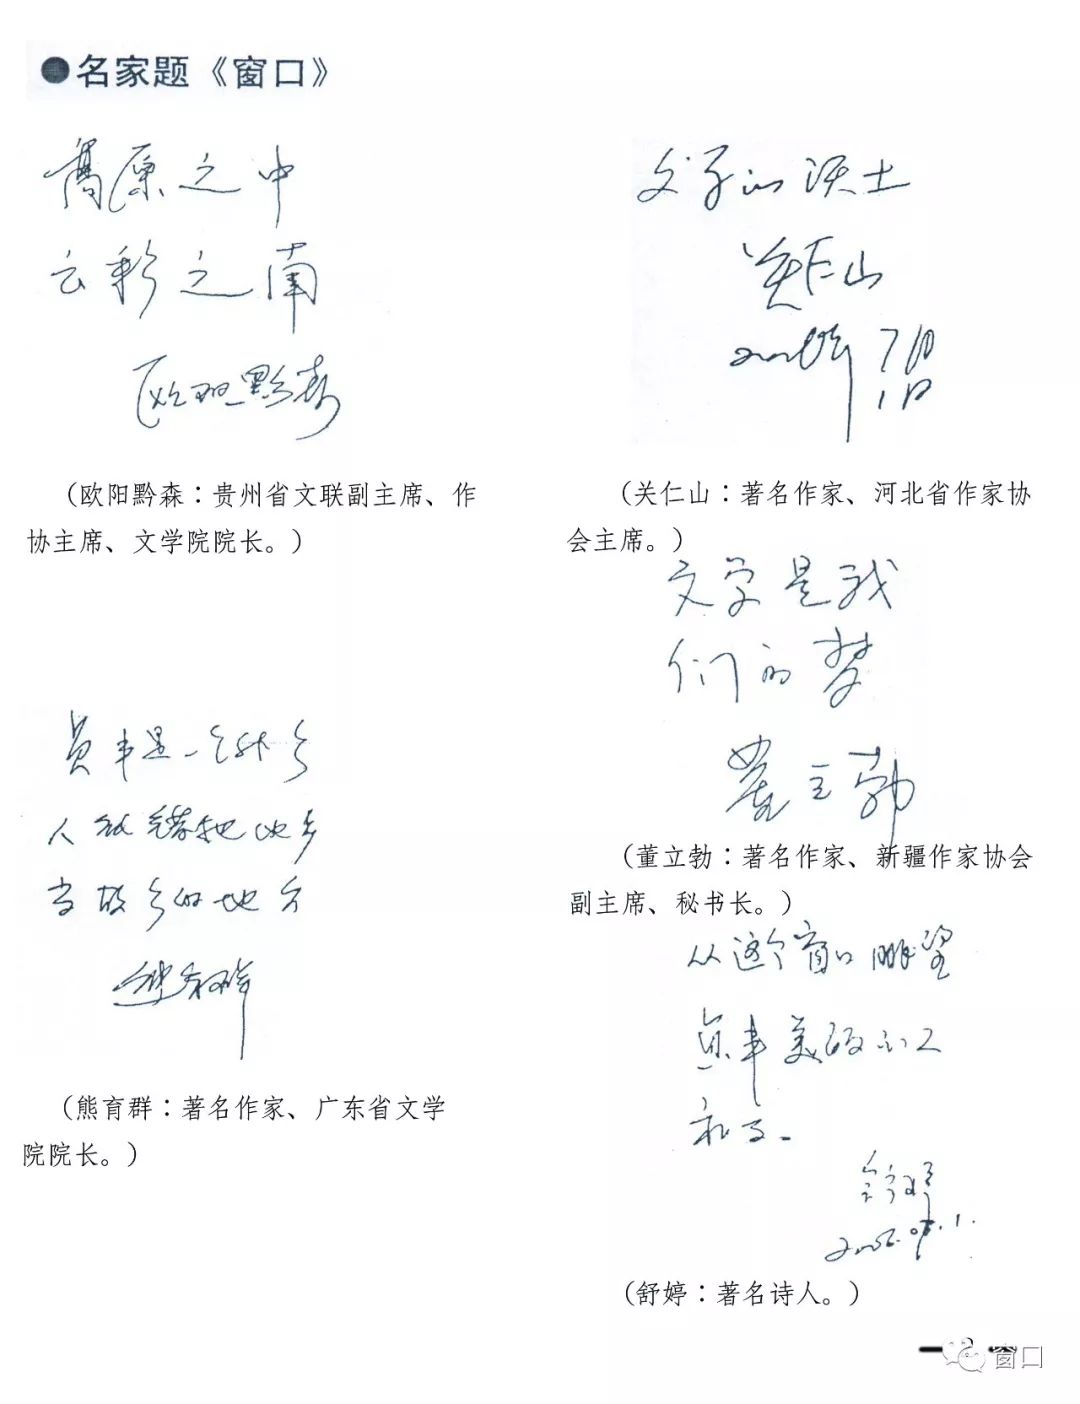 ●名家题《窗口》
高原之中
云彩之南
欧阳黔森
(欧阳黔森：贵州省文联副主席、作
协主席、文学院院长。)
贞丰是一个外乡
人就错把他乡
当故乡的地方
熊育群
(熊育群：著名作家、广东省文学
院院长。)
文学的沃土
关仁山
7月
1日
(关仁山：著名作家、河北省作家协
会主席。)
文学是我
们的梦
董立勃
(董立勃：著名作家、新疆作家协会
副主席、秘书长。)
从这个窗口眺望
贞丰美丽的
舒婷
(舒婷：著名诗人。)
窗口